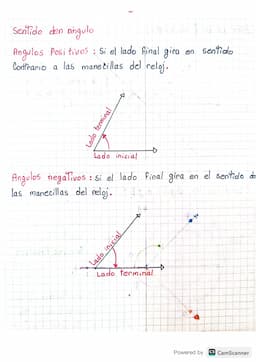 Sentido den ángulo
Angulos Positivos : Si el lado Final gira en sentido
Contrario a las manecillas del reloj.
Lado terminal
Lado inicial
Angulos negativos : Si el lado Final gira en el sentido de
las manecillas del reloj.
Lado inicial
Lado terminal
Powered by CS CamScanner